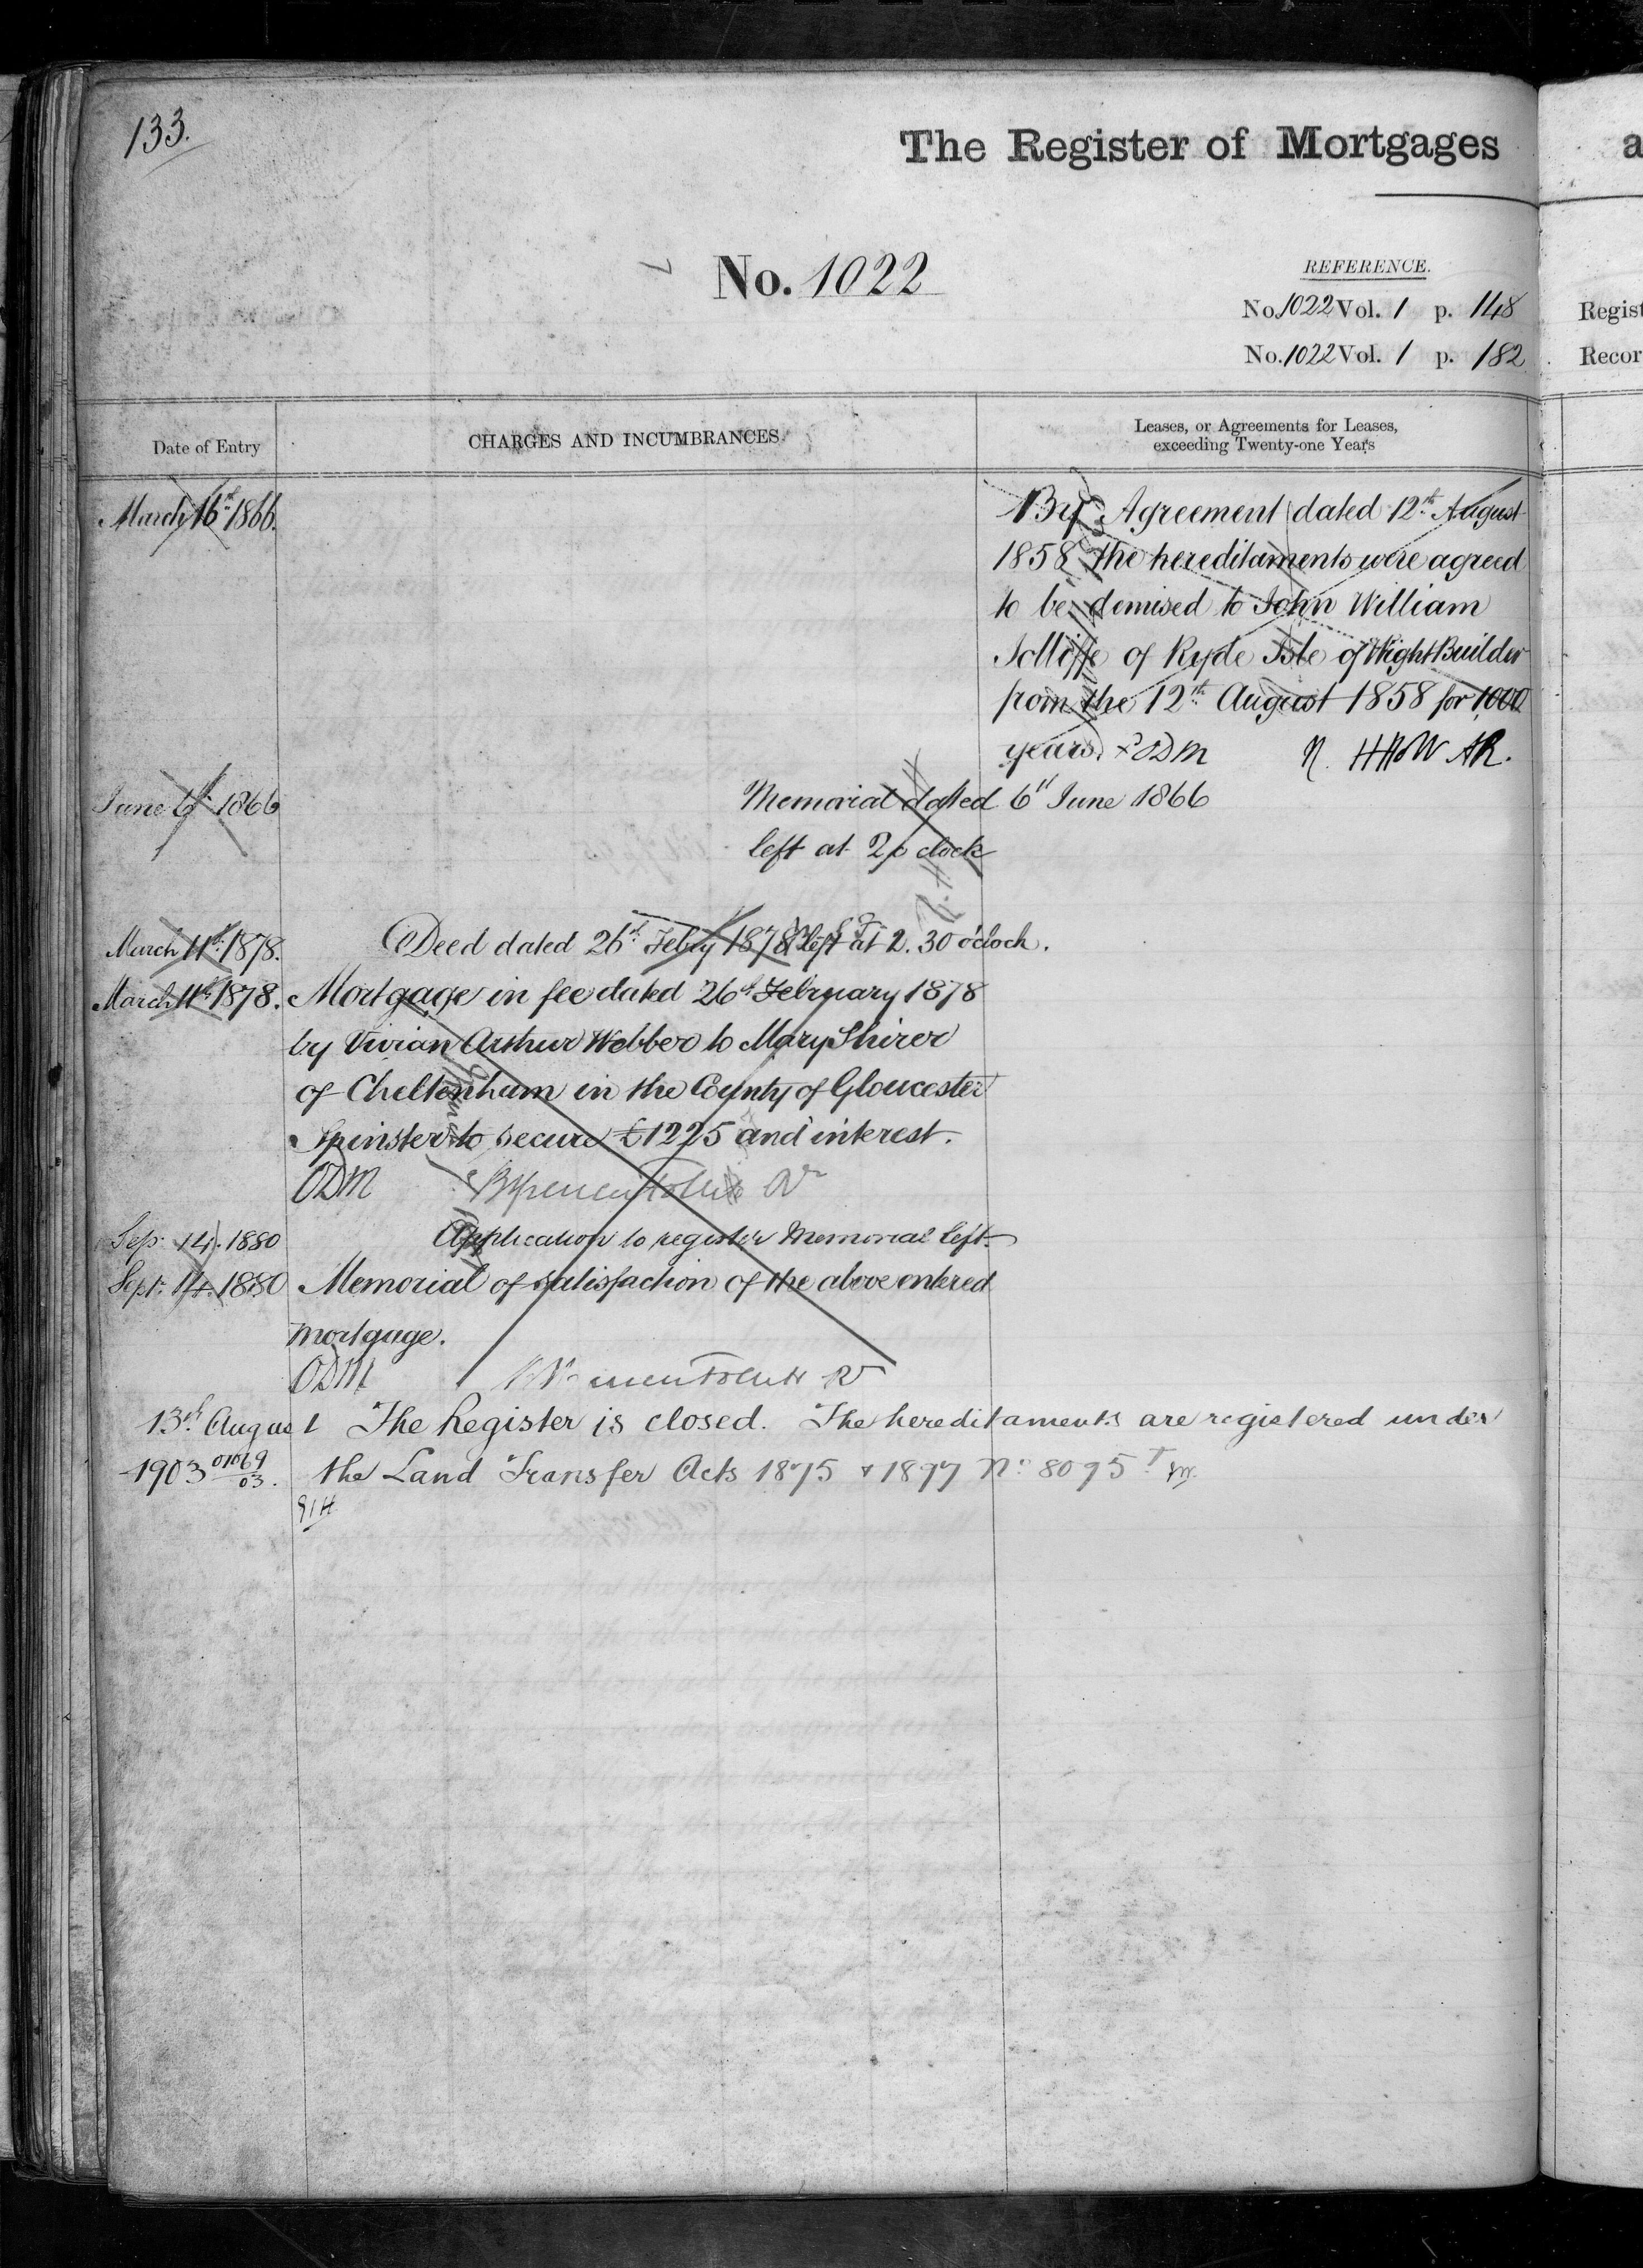 133.
The Register of Mortgages
No. 1022
REFERENCE.
No. 1022 Vol. 1 p. 148
No. 1022 Vol. 1 p. 182
Regist
Recor
Date of Entry
CHARGES AND INCUMBRANCES.
Leases, or Agreements for Leases,
exceeding Twenty-one Years
March 16th 1866.
By Agreement dated 12th August
1858 the hereditaments were agreed
to be demised to John William
Jolliffe of Ryde Isle of Wight Builder
from the 12th August 1858 for 1000
years. ODM
June 6th 1866
Memorial dated 6th June 1866
left at 2 o'clock
March 11th 1878.
Deed dated 26th Feby 1878 left at 2.30 o'clock.
March 11th 1878.
Mortgage in fee dated 26th February 1878
by Vivian Arthur Webber to Mary Shirer
of Cheltenham in the County of Gloucester
Spinster to secure £1225 and interest.
ODM
Sep: 14. 1880
Application to register Memorial left.
Sept: 14. 1880
Memorial of satisfaction of the above entered
mortgage.
ODM
13th August The Register is closed. The hereditaments are registered under
1903 the Land Transfer Acts 1875 & 1897 No. 8095